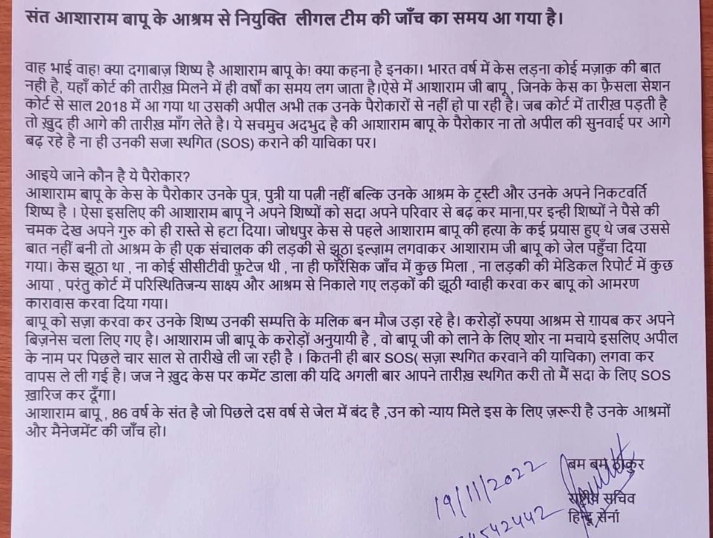 संत आशाराम बापू के आश्रम से नियुक्ति लीगल टीम की जाँच का समय आ गया है।
वाह भाई वाह! क्या दगाबाज़ शिष्य है आशाराम बापू के! क्या कहना है इनका। भारत वर्ष में केस लड़ना कोई मज़ाक़ की बात
नही है, यहाँ कोर्ट की तारीख़ मिलने में ही वर्षों का समय लग जाता है।ऐसे में आशाराम जी बापू , जिनके केस का फ़ैसला सेशन
कोर्ट से साल 2018 में आ गया था उसकी अपील अभी तक उनके पैरोकारों से नहीं हो पा रही है। जब कोर्ट में तारीख़ पड़ती है
तो ख़ुद ही आगे की तारीख़ माँग लेते है। ये सचमुच अदभुद है की आशाराम बापू के पैरोकार ना तो अपील की सुनवाई पर आगे
बढ़ रहे है ना ही उनकी सजा स्थगित (SOS) कराने की याचिका पर।
आइये जाने कौन है ये पैरोकार?
आशाराम बापू के केस के पैरोकार उनके पुत्र, पुत्री या पत्नी नहीं बल्कि उनके आश्रम के ट्रस्टी और उनके अपने निकटवर्ति
शिष्य है । ऐसा इसलिए की आशाराम बापू ने अपने शिष्यों को सदा अपने परिवार से बढ़ कर माना,पर इन्ही शिष्यों ने पैसे की
चमक देख अपने गुरु को ही रास्ते से हटा दिया। जोधपुर केस से पहले आशाराम बापू की हत्या के कई प्रयास हुए थे जब उससे
बात नहीं बनी तो आश्रम के ही एक संचालक की लड़की से झूठा इल्ज़ाम लगवाकर आशाराम जी बापू को जेल पहुँचा दिया
गया। केस झूठा था , ना कोई सीसीटीवी फ़ुटेज थी , ना ही फॉरेंसिक जाँच में कुछ मिला , ना लड़की की मेडिकल रिपोर्ट में कुछ
आया , परंतु कोर्ट में परिस्थितिजन्य साक्ष्य और आश्रम से निकाले गए लड़कों की झूठी ग्वाही करवा कर बापू को आमरण
कारावास करवा दिया गया।
बापू को सज़ा करवा कर उनके शिष्य उनकी सम्पत्ति के मलिक बन मौज उड़ा रहे है। करोड़ों रुपया आश्रम से ग़ायब कर अपने
बिज़नेस चला लिए गए है। आशाराम जी बापू के करोड़ों अनुयायी है , वो बापू जी को लाने के लिए शोर ना मचाये इसलिए अपील
के नाम पर पिछले चार साल से तारीखे ली जा रही है । कितनी ही बार SOS( सज़ा स्थगित करवाने की याचिका) लगवा कर
वापस ले ली गई है। जज ने ख़ुद केस पर कमेंट डाला की यदि अगली बार आपने तारीख़ स्थगित करी तो मैं सदा के लिए SOS
ख़ारिज कर दूँगा।
आशाराम बापू , 86 वर्ष के संत है जो पिछले दस वर्ष से जेल में बंद है ,उन को न्याय मिले इस के लिए ज़रूरी है उनके आश्रमों
और मैनेजमेंट की जाँच हो।
19/11/2022
बम बम ठाकुर
राष्ट्रीय सचिव
542442
हिन्दू सेना